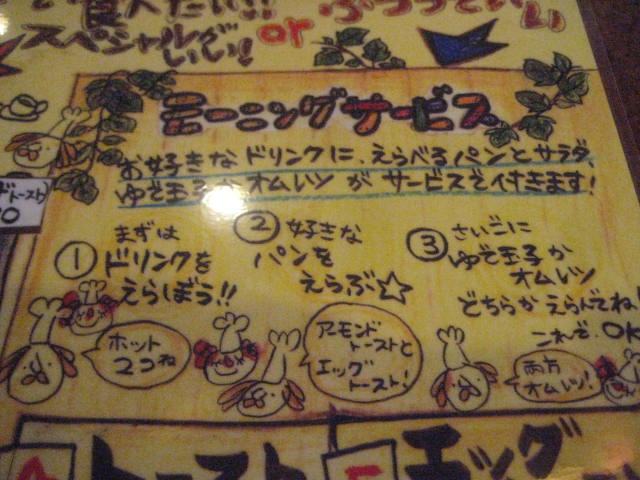 食べたい!! or ふつうでいい
スペシャルがいい!
モーニングサービス
お好きなドリンクに、えらべるパンとサラダ
ゆで玉子かオムレツがサービスで付きます!
① まずは
ドリンクを
えらぼう!!
② 好きな
パンを
えらぶ☆
③ さいごに
ゆで玉子か
オムレツ
どちらかえらんでね!
これで、OK
ホット
2コね
アーモンド
トーストと
エッグ
トースト!
両方
オムレツ!
トースト
エッグ